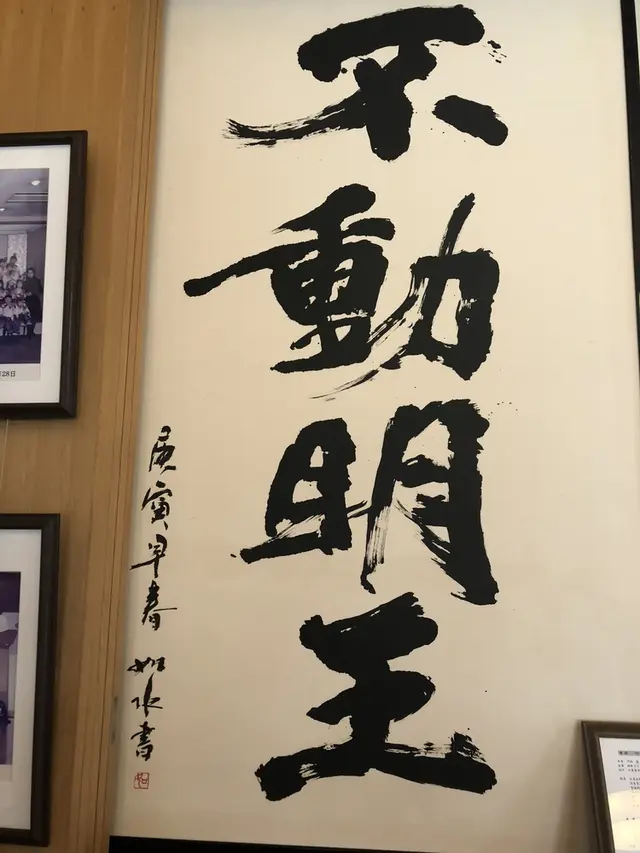 不動明王
庚寅早春 如水書
28日